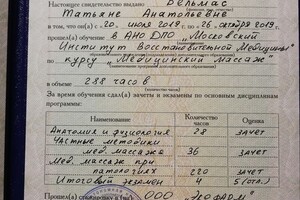 Настоящее свидетельство выдано Бельмас
Татьяне Анатольевне
в том, что он(а) с 20. июля 2019г. по 26. октября 2019г.
прошел(а) обучение в АНО ДПО „Московский
Институт Восстановительной Медицины"
по курсу „Медицинский Массаж"
в объеме 288 часов
За время обучения сдал(а) зачеты и экзамены по основным дисциплинам
программы:
Наименование Количество часов Оценка
Анатомия и физиология 28 зачет
Частные методики
мед. массажа 36 зачет
Мед. массаж при
патологиях 220 зачет
Итоговый экзамен 4 5 (отл.)
Прошел(а) ООО